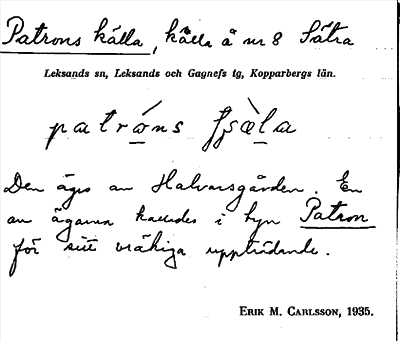 Patrons källa, källa å nr 8 Sätra
Leksands sn, Leksands och Gagnefs tg, Kopparbergs län.
patró̲ns ʃʃæ̲̀la
Den ägs av Halvarsgården. En
av ägarna kallades i byn Patron
för sitt vräkiga uppträdande.
ERIK M. CARLSSON, 1935.